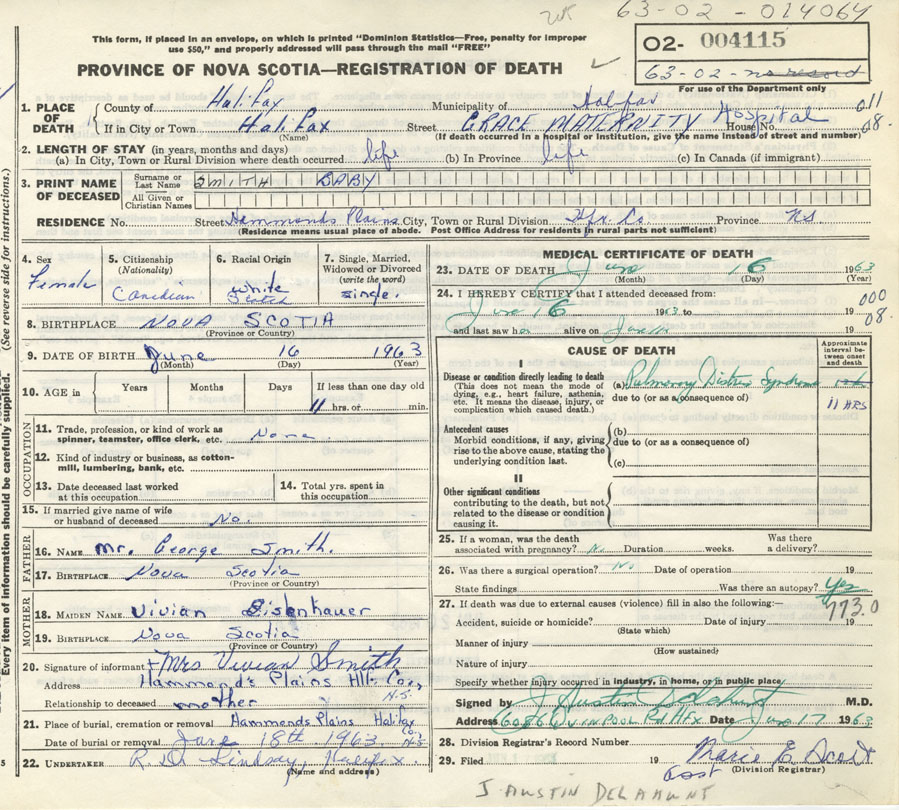 63-02-014064
This form, if placed in an envelope, on which is printed "Dominion Statistics—Free, penalty for improper
use $50," and properly addressed will pass through the mail "FREE"
02- 004115
63-02- no record
For use of the Department only
PROVINCE OF NOVA SCOTIA—REGISTRATION OF DEATH
1. PLACE OF DEATH
County of Halifax Municipality of Halifax 011
If in City or Town Halifax Street GRACE MATERNITY Hospital House No. 08.
(Name) (If death occurred in a hospital or institution, give the name instead of street and number)
2. LENGTH OF STAY (in years, months and days)
(a) In City, Town or Rural Division where death occurred life (b) In Province life (c) In Canada (if immigrant)
3. PRINT NAME OF DECEASED
Surname or Last Name SMITH BABY
All Given or Christian Names
RESIDENCE No. Street Hammonds Plains City, Town or Rural Division Hfx. Co. Province NS
(Residence means usual place of abode. Post Office Address for residents in rural parts not sufficient)
4. Sex
Female
5. Citizenship
(Nationality)
Canadian
6. Racial Origin
White
7. Single, Married, Widowed or Divorced
(write the word)
Single.
8. BIRTHPLACE NOVA SCOTIA
(Province or Country)
9. DATE OF BIRTH June 16 1963
(Month) (Day) (Year)
10. AGE in Years Months Days If less than one day old
11 hrs. or min.
OCCUPATION
11. Trade, profession, or kind of work as
spinner, teamster, office clerk, etc. None
12. Kind of industry or business, as cotton-
mill, lumbering, bank, etc.
13. Date deceased last worked
at this occupation
14. Total yrs. spent in
this occupation
15. If married give name of wife
or husband of deceased No.
FATHER
16. NAME Mr. George Smith.
17. BIRTHPLACE Nova Scotia
(Province or Country)
MOTHER
18. MAIDEN NAME Vivian Eisenhauer
19. BIRTHPLACE Nova Scotia
(Province or Country)
20. Signature of informant + Mrs Vivian Smith
Address Hammond's Plains Hfx. Co., N.S.
Relationship to deceased mother
21. Place of burial, cremation or removal Hammonds Plains Halifax Co. N.S.
Date of burial or removal June 18th. 1963
22. UNDERTAKER Lindsay, Halifax.
(Name and address)
MEDICAL CERTIFICATE OF DEATH
23. DATE OF DEATH June 16 1963
(Month) (Day) (Year)
24. I HEREBY CERTIFY that I attended deceased from: 000
June 16 1963 to 19
and last saw her alive on June 19 08.
CAUSE OF DEATH
Approximate interval between onset and death
I
Disease or condition directly leading to death
(This does not mean the mode of
dying, e.g., heart failure, asthenia,
etc. It means the disease, injury, or
complication which caused death.)
(a) Pulmonary Distress Syndrome
due to (or as a consequence of)
11 HRS
Antecedent causes
Morbid conditions, if any, giving
rise to the above cause, stating the
underlying condition last.
(b)
due to (or as a consequence of)
(c)
II
Other significant conditions
contributing to the death, but not
related to the disease or condition
causing it.
25. If a woman, was the death
associated with pregnancy? No Duration weeks. Was there
a delivery?
26. Was there a surgical operation? No Date of operation 19
State findings Was there an autopsy? Yes
27. If death was due to external causes (violence) fill in also the following:— 773.0
Accident, suicide or homicide? Date of injury 19
(State which)
Manner of injury
(How sustained)
Nature of injury
Specify whether injury occurred in industry, in home, or in public place
Signed by J Austin Delahunt M.D.
Address 6086 Quinpool Rd Hfx Date June 17 1963
28. Division Registrar's Record Number
29. Filed 19 Marie E Scott
(Division Registrar)
J. AUSTIN DELAHUNT
Every item of information should be carefully supplied. (See reverse side for instructions.)